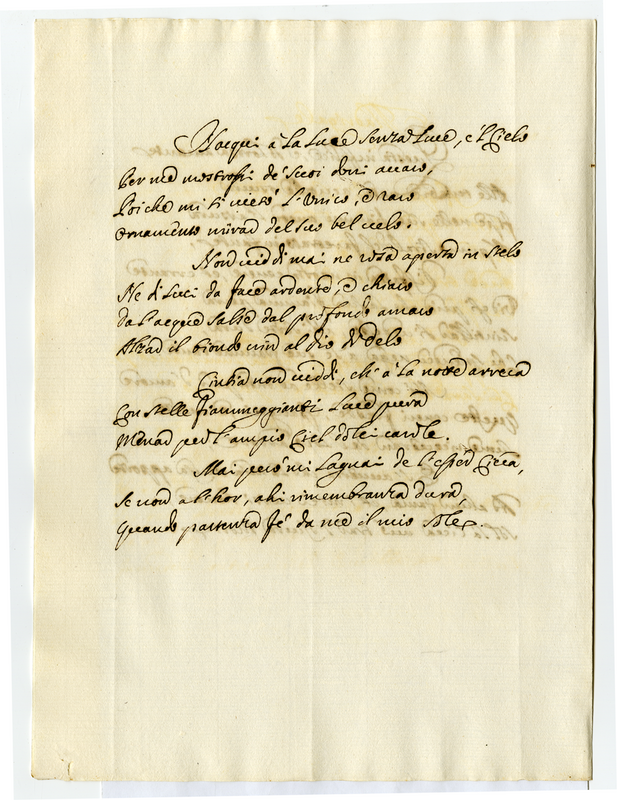 Nacqui à la luce senza luce, e 'l Cielo
Per me mostrossi de' suoi doni avaro,
Poiche mi si vietò l'unico, e raro
Ornamento mirar del suo bel velo.
Non viddi mai ne rosa aperta in stelo
Ne di luci da face ardente, e chiaro
Da l'acque salse dal profondo amaro
Alzar il biondo crin al dio di Delo
Cintia non viddi, ch' à la notte arreca
Con stelle fiammeggianti luce pura
Menar per l'ampio Ciel dolci carole.
Mai però mi lagnai de l'esser cieca,
Se non a l'hor, ahi rimembranza dura,
Quando partenza fe' da me il mio sole.